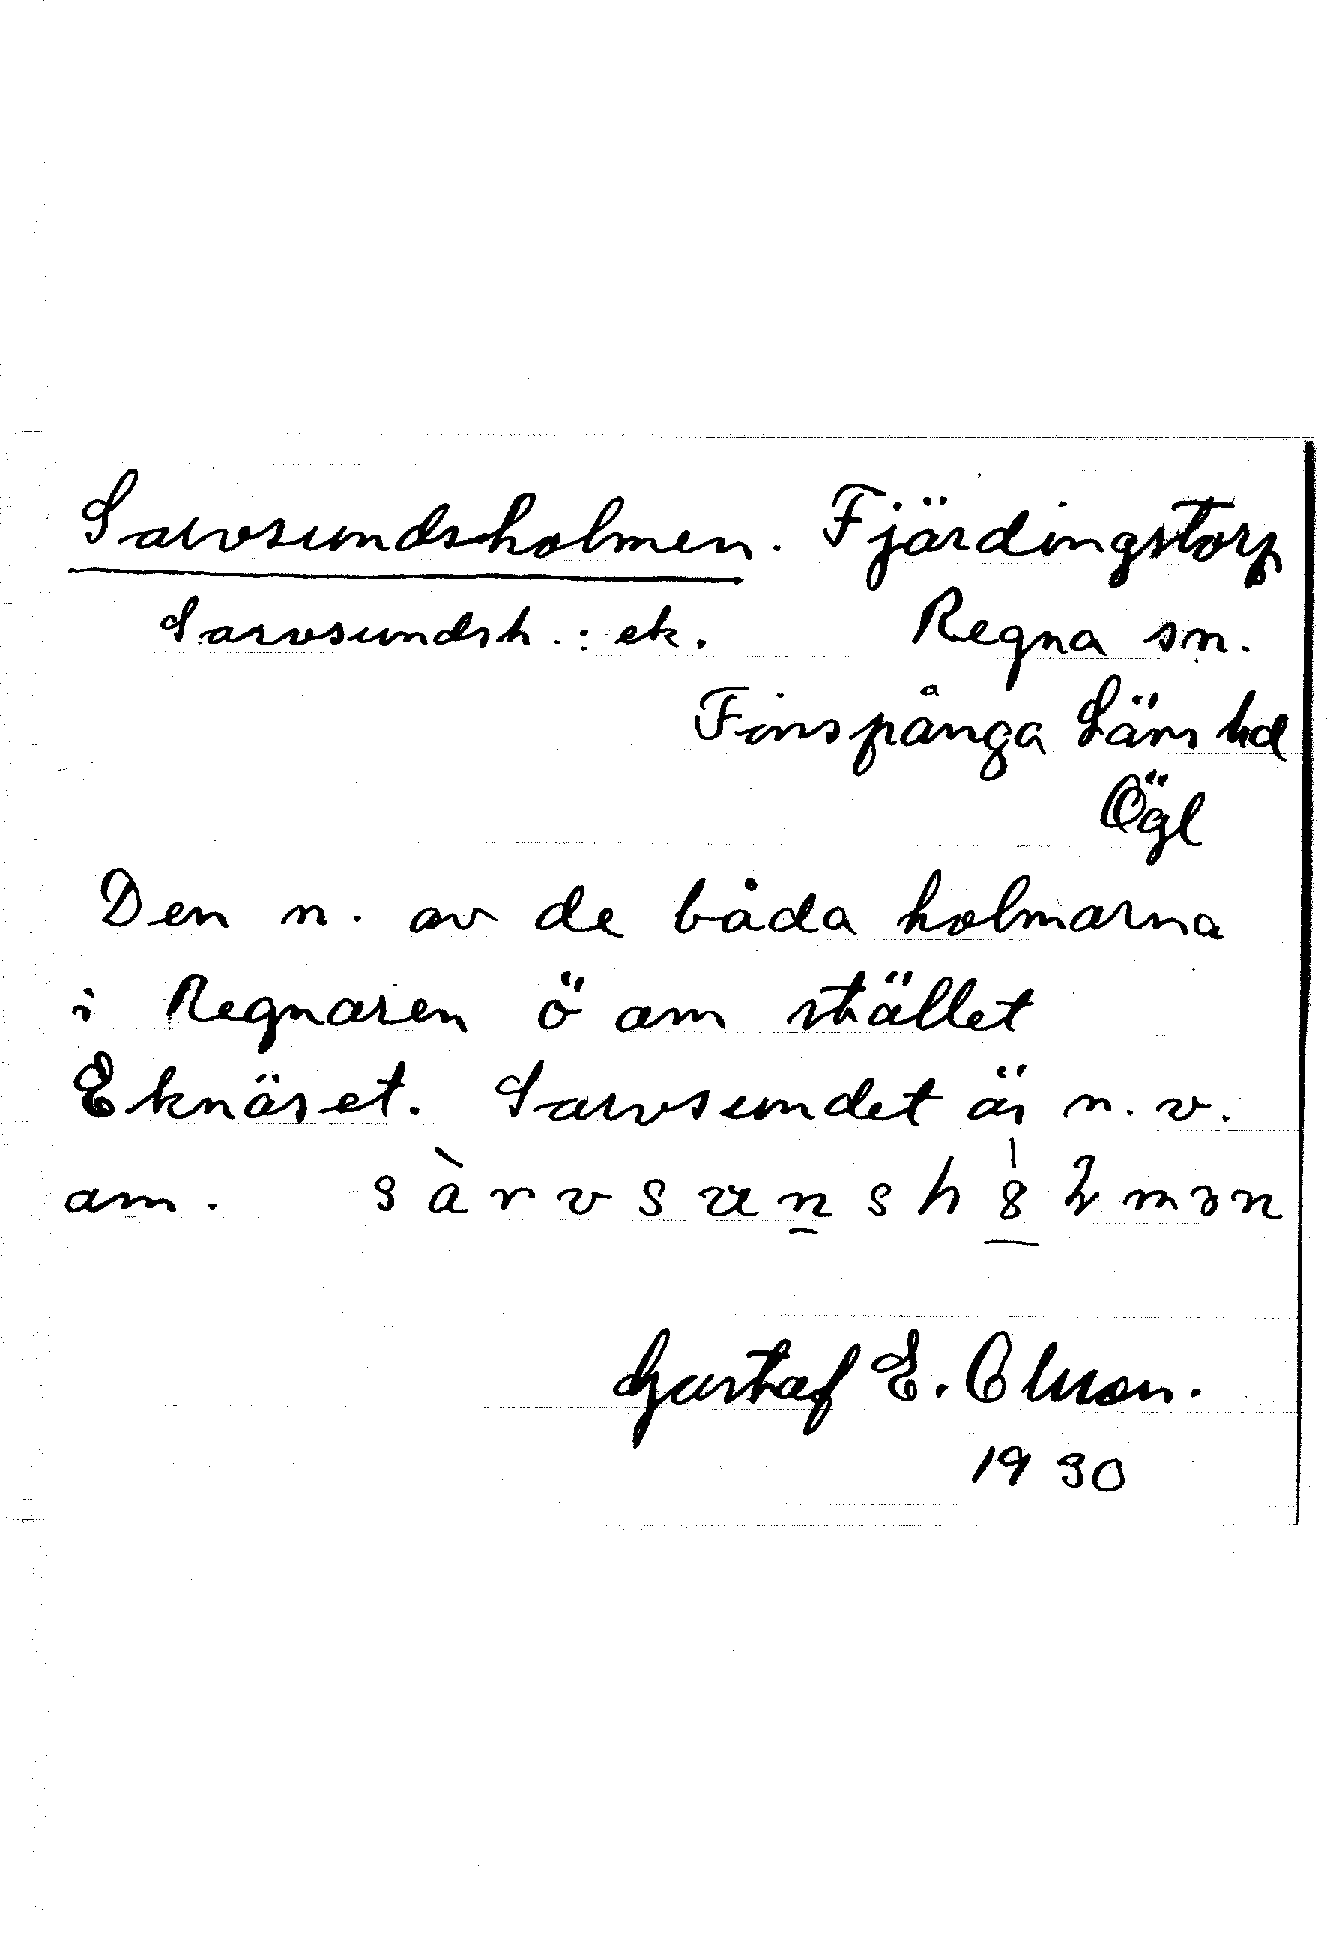 Sarvsundsholmen. Fjärdingstorp
Sarvsundsh.: ek. Regna sn.
Finspånga Läns hd
Ögl
Den n. av de båda holmarna
i Regnaren ö om stället
Eknäset. Sarvsundet är n. v.
om.
Gustaf E. Olsson.
1930